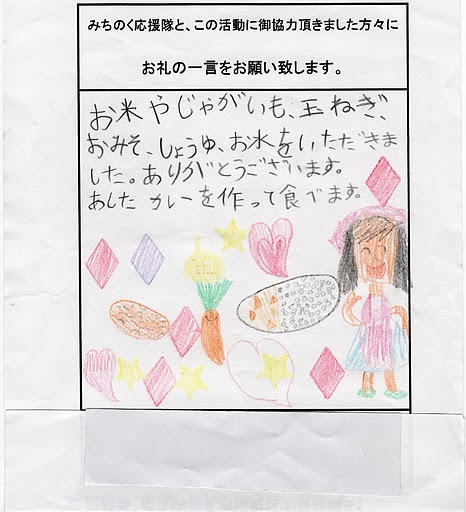 みちのく応援隊と、この活動に御協力頂きました方々に
お礼の一言をお願い致します。
お米やじゃがいも、玉ねぎ、
おみそ、しょうゆ、お水をいただきま
した。ありがとうございます。
あした カレーを作って食べます。